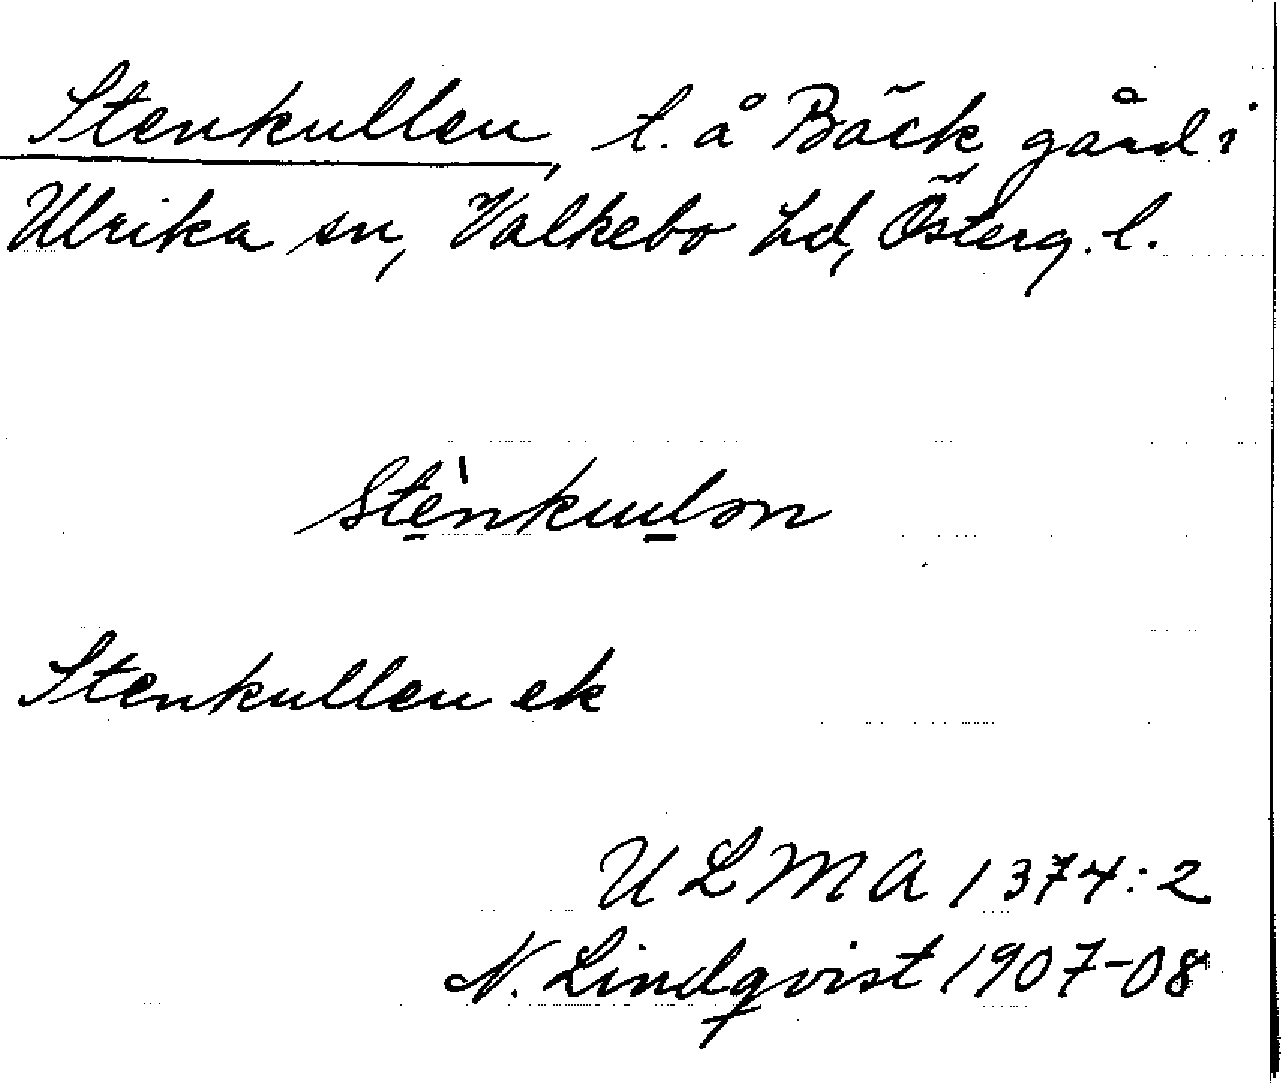 Stenkullen, t. å Bäck gård i
Ulrika sn, Valkebo hd, Österg. l.
Stenkullen ek
ULMA 1374:2
N. Lindqvist 1907-08